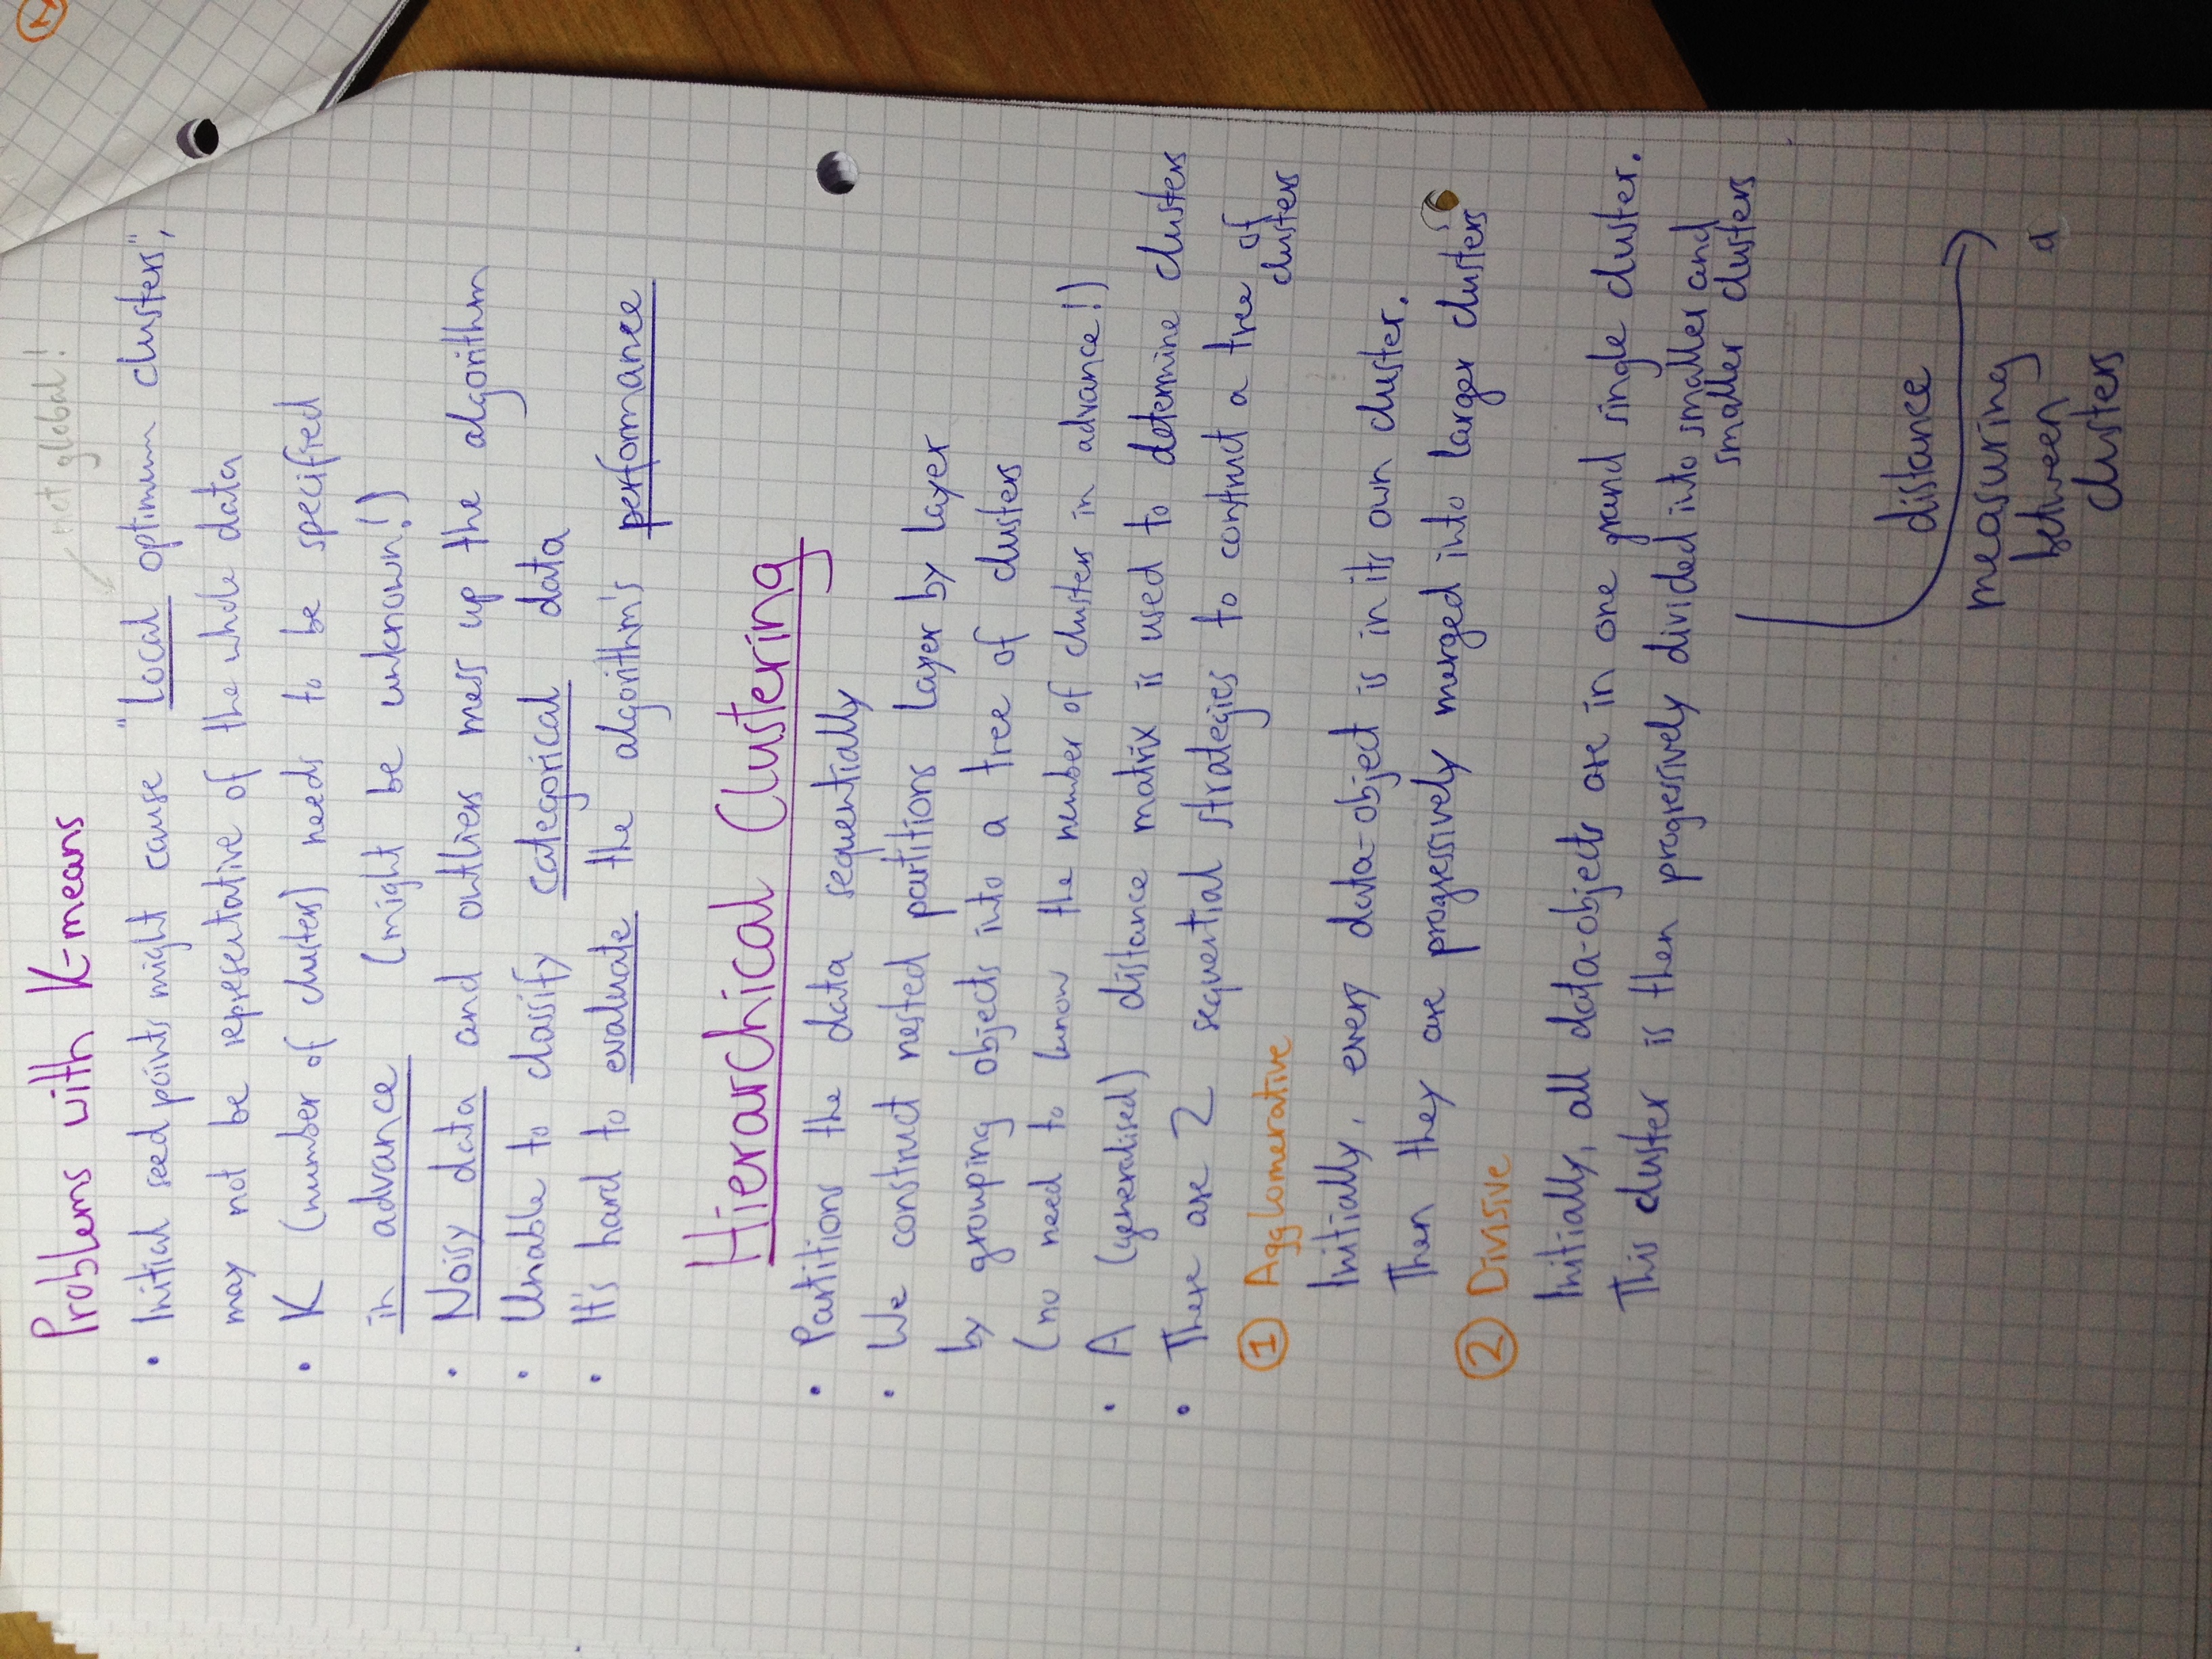 Problems with K-means
not global!
• Initial seed points might cause "local optimum clusters",
may not be representative of the whole data
• K (number of clusters) needs to be specified
in advance (might be unknown!)
• Noisy data and outliers mess up the algorithm
• Unable to classify categorical data
• It's hard to evaluate the algorithm's performance
Hierarchical Clustering
• Partitions the data sequentially
• We construct nested partitions layer by layer
by grouping objects into a tree of clusters
(no need to know the number of clusters in advance!)
• A (generalised) distance matrix is used to determine clusters
• There are 2 sequential strategies to construct a tree of
clusters
① Agglomerative
Initially, every data-object is in its own cluster.
Then they are progressively merged into larger clusters
② Divisive
Initially, all data-objects are in one grand single cluster.
This cluster is then progressively divided into smaller and
smaller clusters
distance
measuring
between
clusters